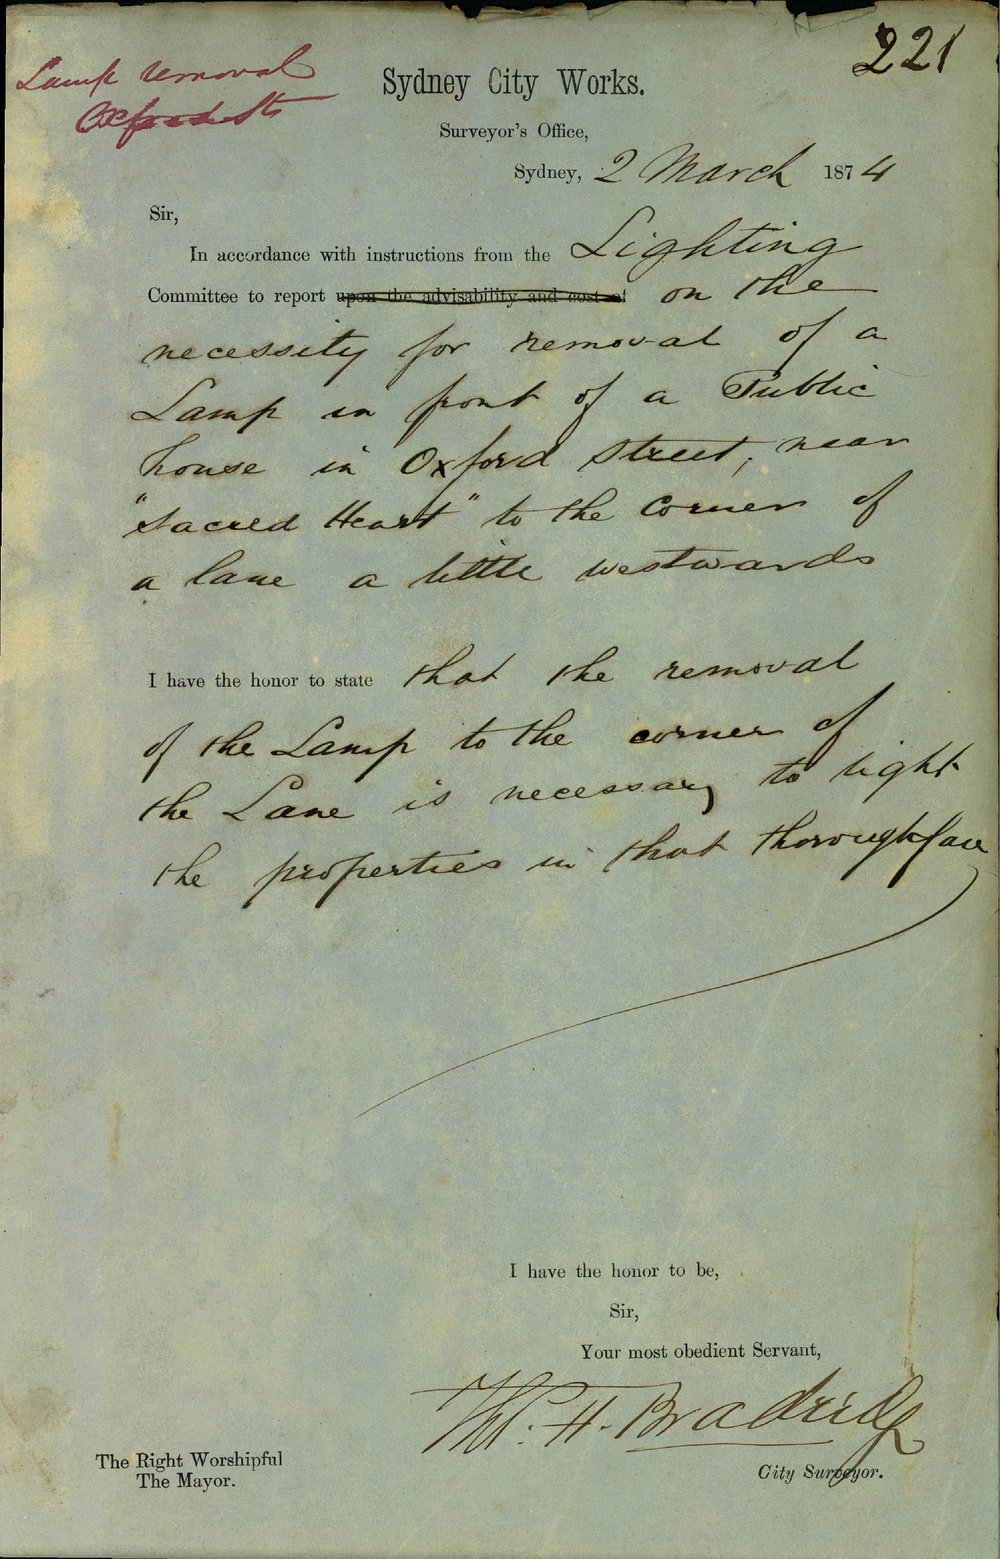 221
Lamp removal
Oxford St
Sydney City Works.
Surveyor's Office,
Sydney, 2 March 1874
Sir,
In accordance with instructions from the Lighting
Committee to report upon the advisability and cost of on the
necessity for removal of a
Lamp in front of a Public
house in Oxford Street, near
"Sacred Heart" to the Corner of
a lane a little westwards
I have the honor to state that the removal
of the Lamp to the corner of
the Lane is necessary to light
the properties in that thoroughfare
I have the honor to be,
Sir,
Your most obedient Servant,
H. Bradridge
City Surveyor.
The Right Worshipful
The Mayor.